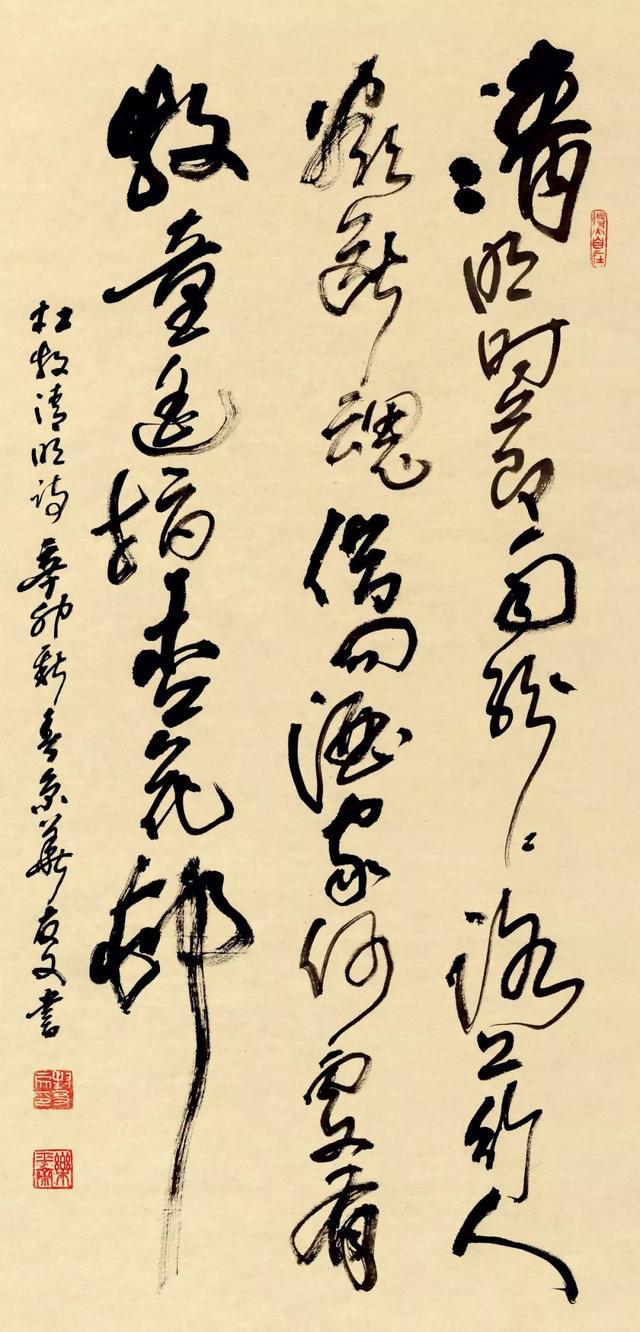 得大自在
清明时节雨纷纷路上行人
欲断魂借问酒家何处有
牧童遥指杏花邨
杜牧清明诗辛卯新春京华文书